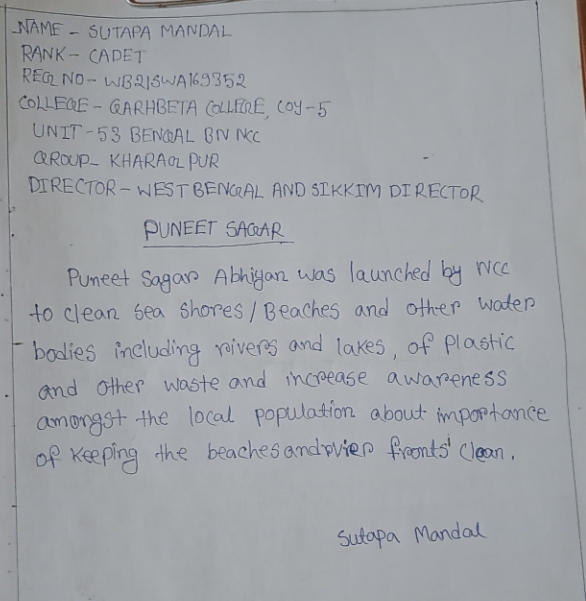 NAME - SUTAPA MANDAL
RANK - CADET
REG NO - WB21SWA169352
COLLEGE - GARHBETA COLLEGE, COY-5
UNIT - 53 BENGAL BN NCC
GROUP - KHARAG PUR
DIRECTOR - WEST BENGAL AND SIKKIM DIRECTOR
PUNEET SAGAR
Puneet Sagar Abhiyan was launched by NCC
to clean sea shores / Beaches and other water
bodies including rivers and lakes, of plastic
and other waste and increase awareness
amongst the local population about importance
of keeping the beaches and rvier fronts' clean.
Sutapa Mandal